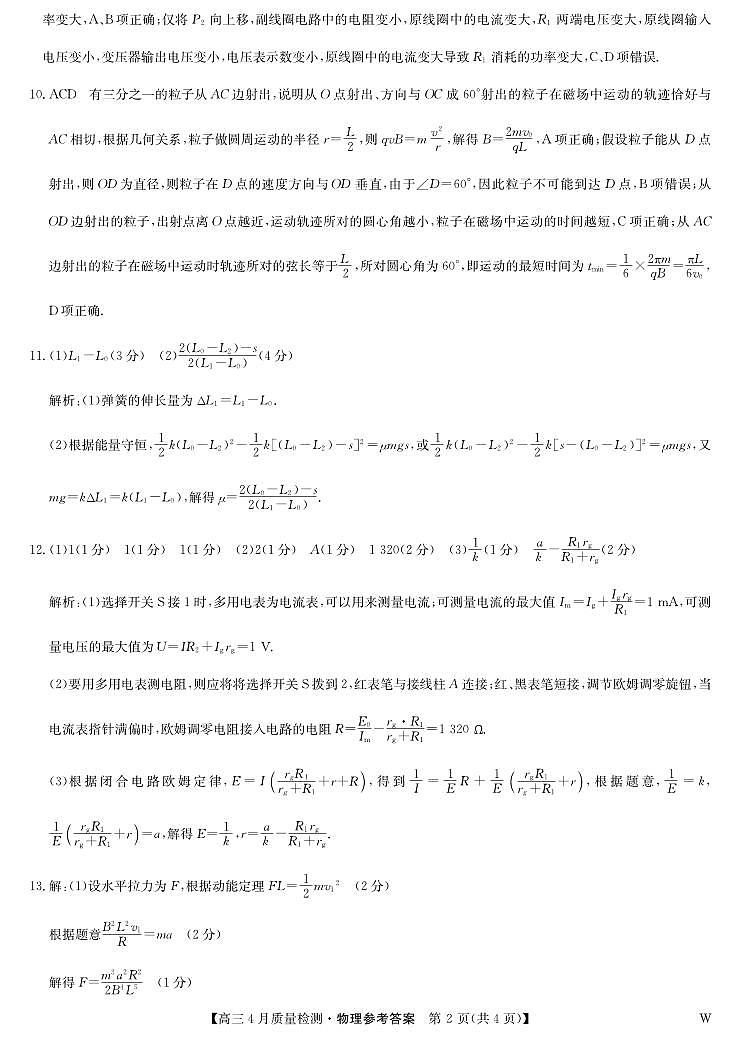 率变大,A、B项正确;仅将 P₂ 向上移,副线圈电路中的电阻变小,原线圈中的电流变大,R₁ 两端电压变大,原线圈输入
电压变小,变压器输出电压变小,电压表示数变小,原线圈中的电流变大导致 R₁ 消耗的功率变大,C、D项错误.
10. ACD 有三分之一的粒子从 AC 边射出,说明从 O 点射出、方向与 OC 成 60°射出的粒子在磁场中运动的轨迹恰好与
AC 相切,根据几何关系,粒子做圆周运动的半径 r=L/2,则 qvB=m v²/r,解得 B=2mv₀/qL,A 项正确;假设粒子能从 D 点
射出,则 OD 为直径,则粒子在 D 点的速度方向与 OD 垂直,由于∠D=60°,因此粒子不可能到达 D 点,B项错误;从
OD 边射出的粒子,出射点离 O 点越近,运动轨迹所对的圆心角越小,粒子在磁场中运动的时间越短,C 项正确;从 AC
边射出的粒子在磁场中运动时轨迹所对的弦长等于L/2,所对圆心角为 60°,即运动的最短时间为 tmin=1/6×2πm/qB=πL/6v₀,
D 项正确.
11. (1)L₁-L₀(3 分) (2)2(L₀-L₂)-s/2(L₁-L₀)(4 分)
解析:(1)弹簧的伸长量为 ΔL₁=L₁-L₀.
(2)根据能量守恒,1/2k(L₀-L₂)²-1/2k[(L₀-L₂)-s]²=μmgs,或1/2k(L₀-L₂)²-1/2k[s-(L₀-L₂)]²=μmgs,又
mg=kΔL₁=k(L₁-L₀),解得 μ=2(L₀-L₂)-s/2(L₁-L₀).
12. (1)1(1 分) 1(1 分) 1(1 分) (2)2(1 分) A(1 分) 1 320(2 分) (3)1/k(1 分) a/k-R₁rg/R₁+rg(2 分)
解析:(1)选择开关 S 接 1 时,多用电表为电流表,可以用来测量电流;可测量电流的最大值 Im=Ig+Igrg/R₁=1 mA,可测
量电压的最大值为U=IR₂+Igrg=1 V.
(2)要用多用电表测电阻,则应将将选择开关 S 拨到 2,红表笔与接线柱 A 连接;红、黑表笔短接,调节欧姆调零旋钮,当
电流表指针满偏时,欧姆调零电阻接入电路的电阻 R=E₀/Im-rg·R₁/rg+R₁=1 320 Ω.
(3)根据闭合电路欧姆定律,E=I(rgR₁/rg+R₁+r+R),得到1/I=1/E R+1/E(rgR₁/rg+R₁+r),根据题意,1/E=k,
1/E(rgR₁/rg+R₁+r)=a,解得 E=1/k,r=a/k-R₁rg/R₁+rg.
13. 解:(1)设水平拉力为 F,根据动能定理 FL=1/2mv₁² (2 分)
根据题意B²L²v₁/R=ma (2 分)
解得 F=m³a²R²/2B⁴L⁵ (1 分)
【高三 4 月质量检测·物理参考答案 第 2 页(共 4 页)】 W